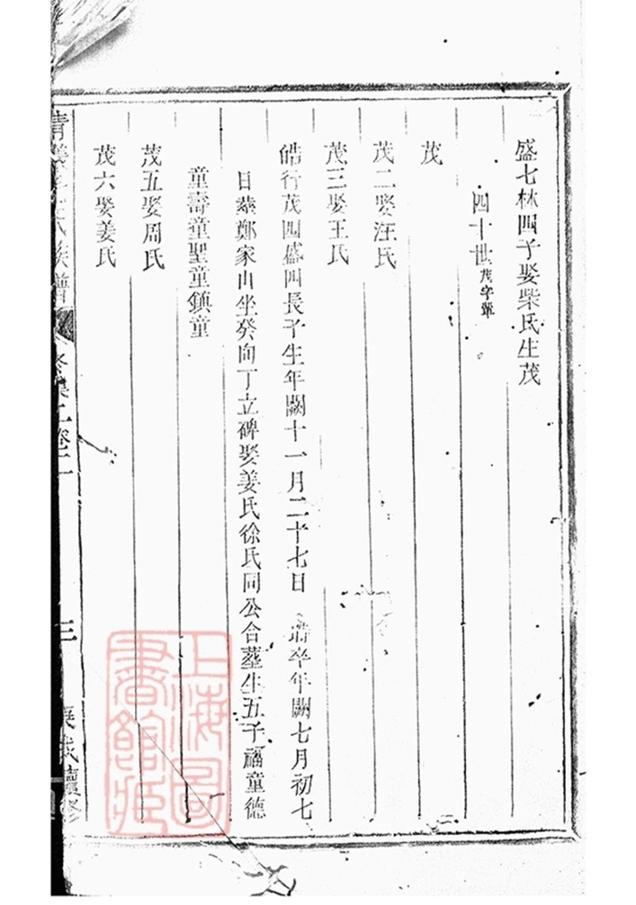 盛七林四子娶柴氏生茂
四十世茂字輩
茂
茂二娶汪氏
茂三娶王氏
皓行茂四盛四長子生年闕十一月二十七日 卒年闕七月初七
日葬鄭家山坐癸向丁立碑娶姜氏徐氏同公合墓生五子福童德
童壽童聖童鎮童
茂五娶周氏
茂六娶姜氏
族譜 卷二 三 續修
上海圖書館藏